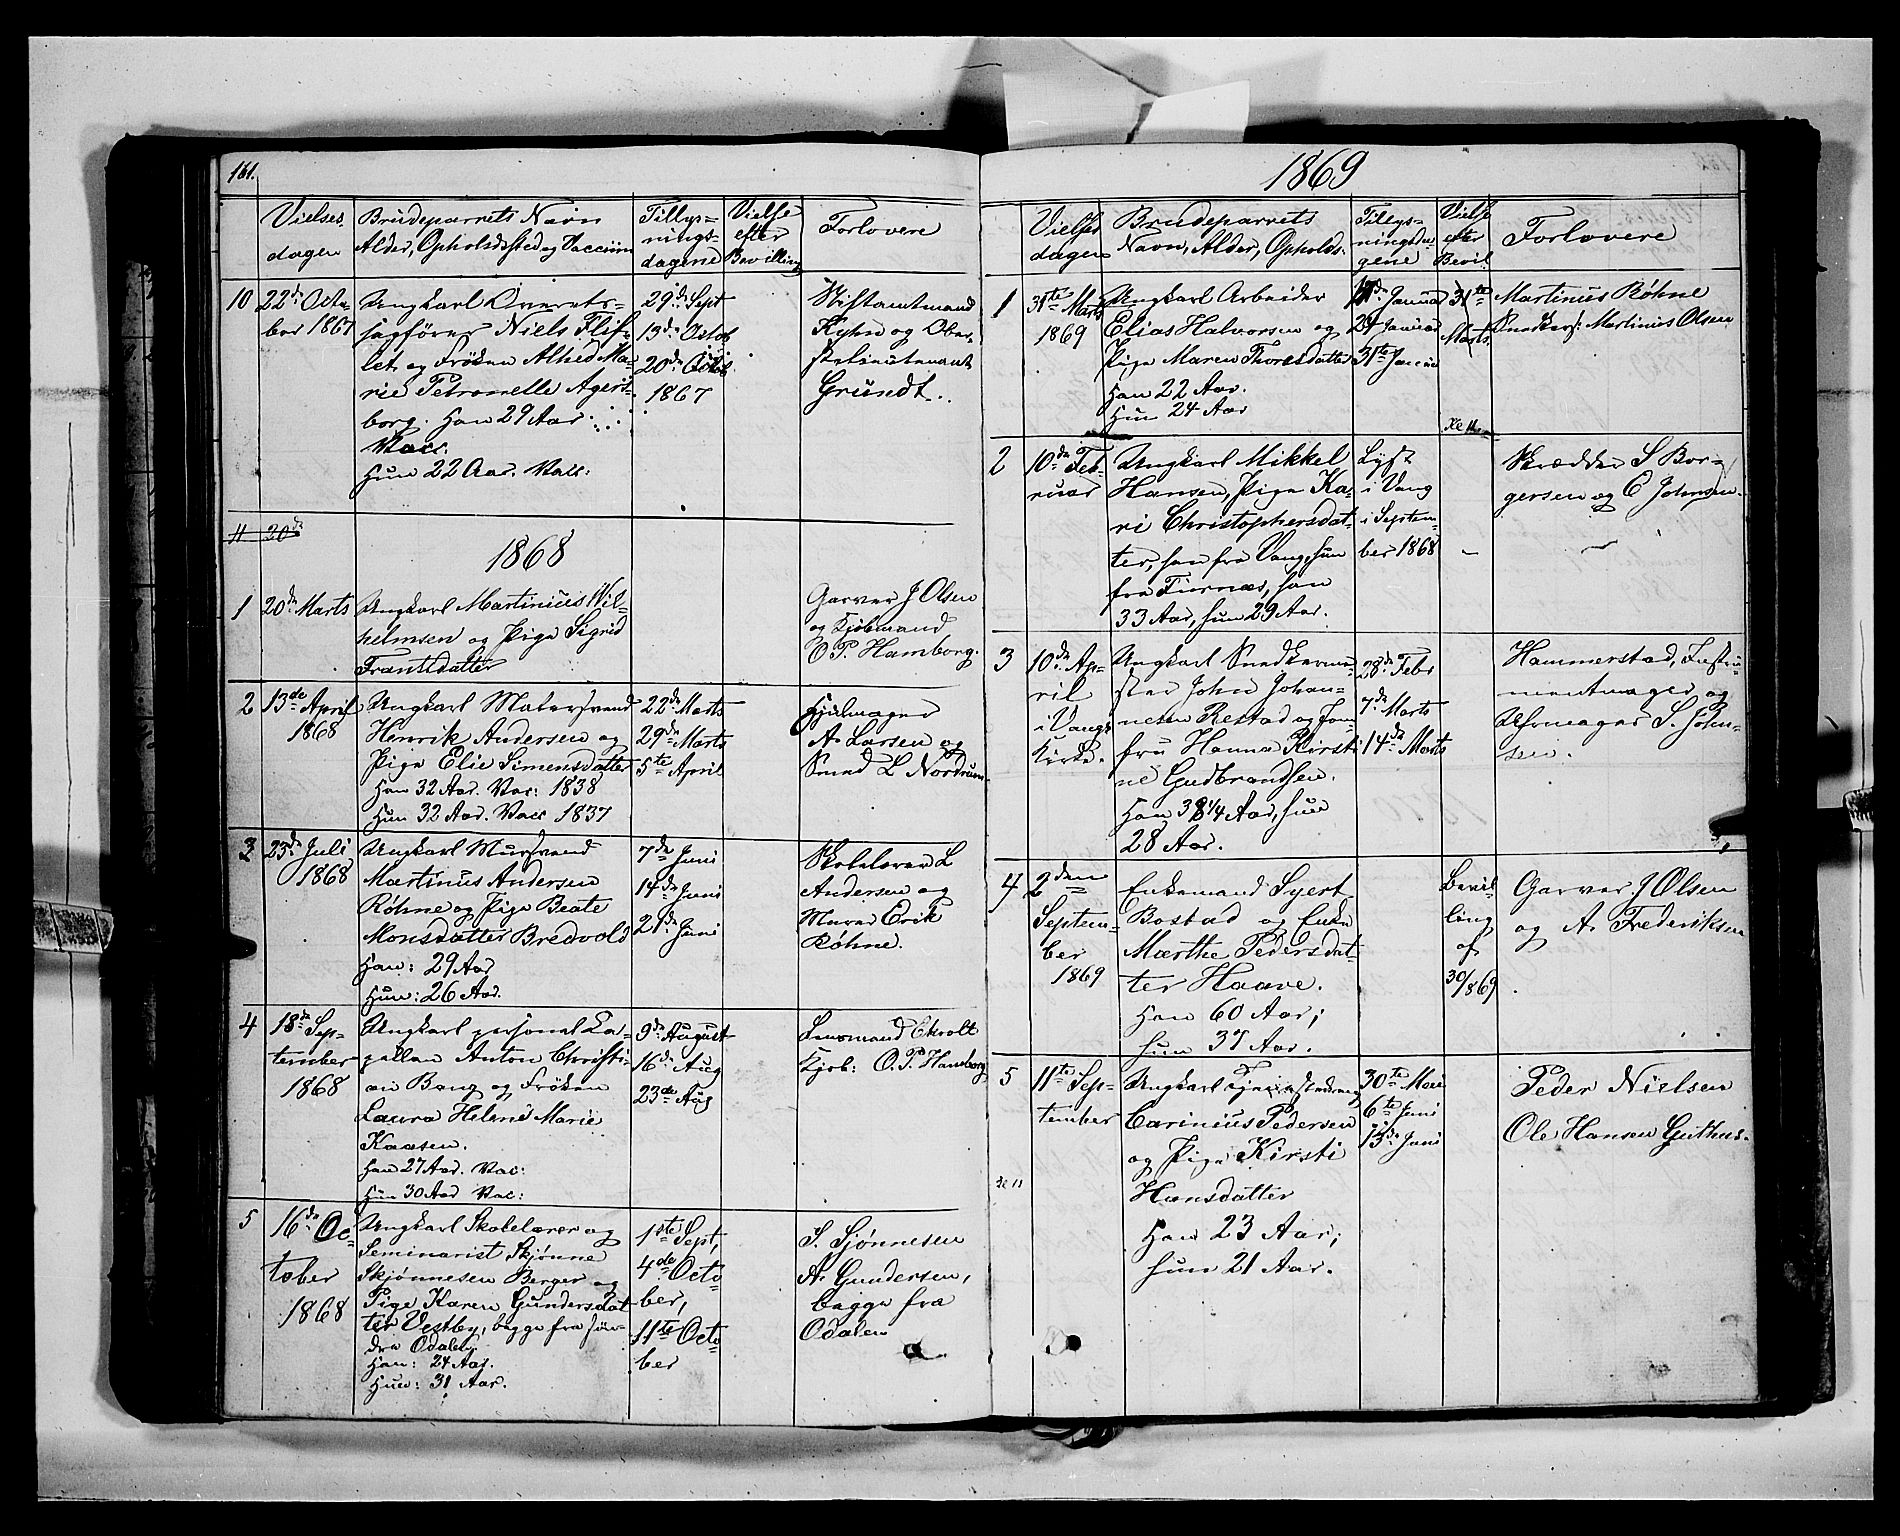 161.
Vielses
dagen
Brudeparrets Navn
Alder, Opholdssted og Vaccin
Tillys=
nings-
dagene
Vielse
efter
Bevilling
Forlovere
10
22de Octo
ber 1867
Ungkarl
sagfører Niels
let og Frøken Alhed Ma-
rie Petronelle Agers-
borg. Han 29 Aar.
Vacc.
Hun 22 Aar. Vacc:
29de Sept
13de Octob
20de Octob
1867
Kyhn og Ober-
stlieutenant
Grundt.
11 30de
1868
1
20de Marts
Ungkarl Martinius Wil-
helmsen og Pige Sigrid
Frantsdatter
Garver J Olsen
og Kjøbmand
O. P. Hamborg.
2
13de April
1868
Ungkarl Malersvend
Henrik Andersen og
Pige Elie Simensdatter
Han 32 Aar. Vac: 1838
Hun 32 Aar. Vacc 1837
22de Marts
29de Marts
5te April
Hjulmager
A. Larsen og
Smed L Nordrum.
3
23de Juli
1868
Ungkarl Mursvend
Martinus Andersen
Røhne og Pige Beate
Monsdatter Bredvold
Han: 29 Aar
Hun: 26 Aar.
7de Juni
14de Juni
21de Juni
Skolelærer L
Andersen og
Murer Erik
Røhne.
4
18de Sep-
tember
1868
Ungkarl personel Ca-
pellan Anton Christi-
an Bang og Frøken
Laura Helene Marie
Kaasen.
Han 27 Aar. Vac:
Hun 30 Aar Vac:
9de August
16de Aug
23de Aug
Lensmand
Kjøb: O. P. Hamborg
5
16de Oc-
tober
1868
Ungkarl Skolelærer og
Seminarist Skjønne
Skjønnesen Berger og
Pige Karen Gundersdat
ter Vestby, begge fra Søn-
dre Odalen
Han: 24 Aar.
Hun: 31 Aar.
1ste Sept,
4de Octo
ber,
11te Octo
ber
S. Sjønnesen
A. Gundersen,
begge fra
Odalen
1869
Vielses
dagen
Brudeparrets
Navn, Alder, Opholds.
Tillys=
ningsda
gene
Vielse
efter
Bevil.
Forlovere
1
31te Marts
1869
Ungkarl Arbeider
Elias Halvorsen og
Pige Maren Thoresdatter
Han 22 Aar.
Hun 24 Aar
Januar
24 Januar
31te Januar
31te
Marts
Martinius Røhne
Snedkers: Martinius Olsen
2
10de Feb-
ruar
Ungkarl Mikkel
Hansen, Pige Ka-
ri Christophersdat-
ter, han fra Vang, hun
fra Furnæs, han
33 Aar, hun 29 Aar.
Lyst
i Vang
i Septem-
ber 1868
Skrædder S Bor-
gersen og C Johnsen.
3
10de Ap-
ril
i Vangs
Kirke.
Ungkarl Snedkerme-
ster John Johan-
nesen Restad og Jom
fru Hanna Kirsti-
ne Gudbrandsen.
Han 38 1/4 Aar, hun
28 Aar.
28de Febr
7de Marts
14de Marts
Hammerstad, Instru
mentmager og
Uhrmager S. John-
sen.
4
2den
Septem-
ber
1869
Enkemand Syert
Bostad og Enke
Marthe Pedersdat-
ter Haave.
Han 60 Aar;
hun 37 Aar.
Bevil-
ling
af
30/8 69
Garver J Olsen
og A. Frederiksen
5
11te Sep-
tember
Ungkarl
Carinius Pedersen
og Pige Kirsti
Hansdatter
Han 23 Aar;
hun 21 Aar.
30te Mai
6te Juni
13de Juni
Peder Nielsen
Ole Hansen Guthus.